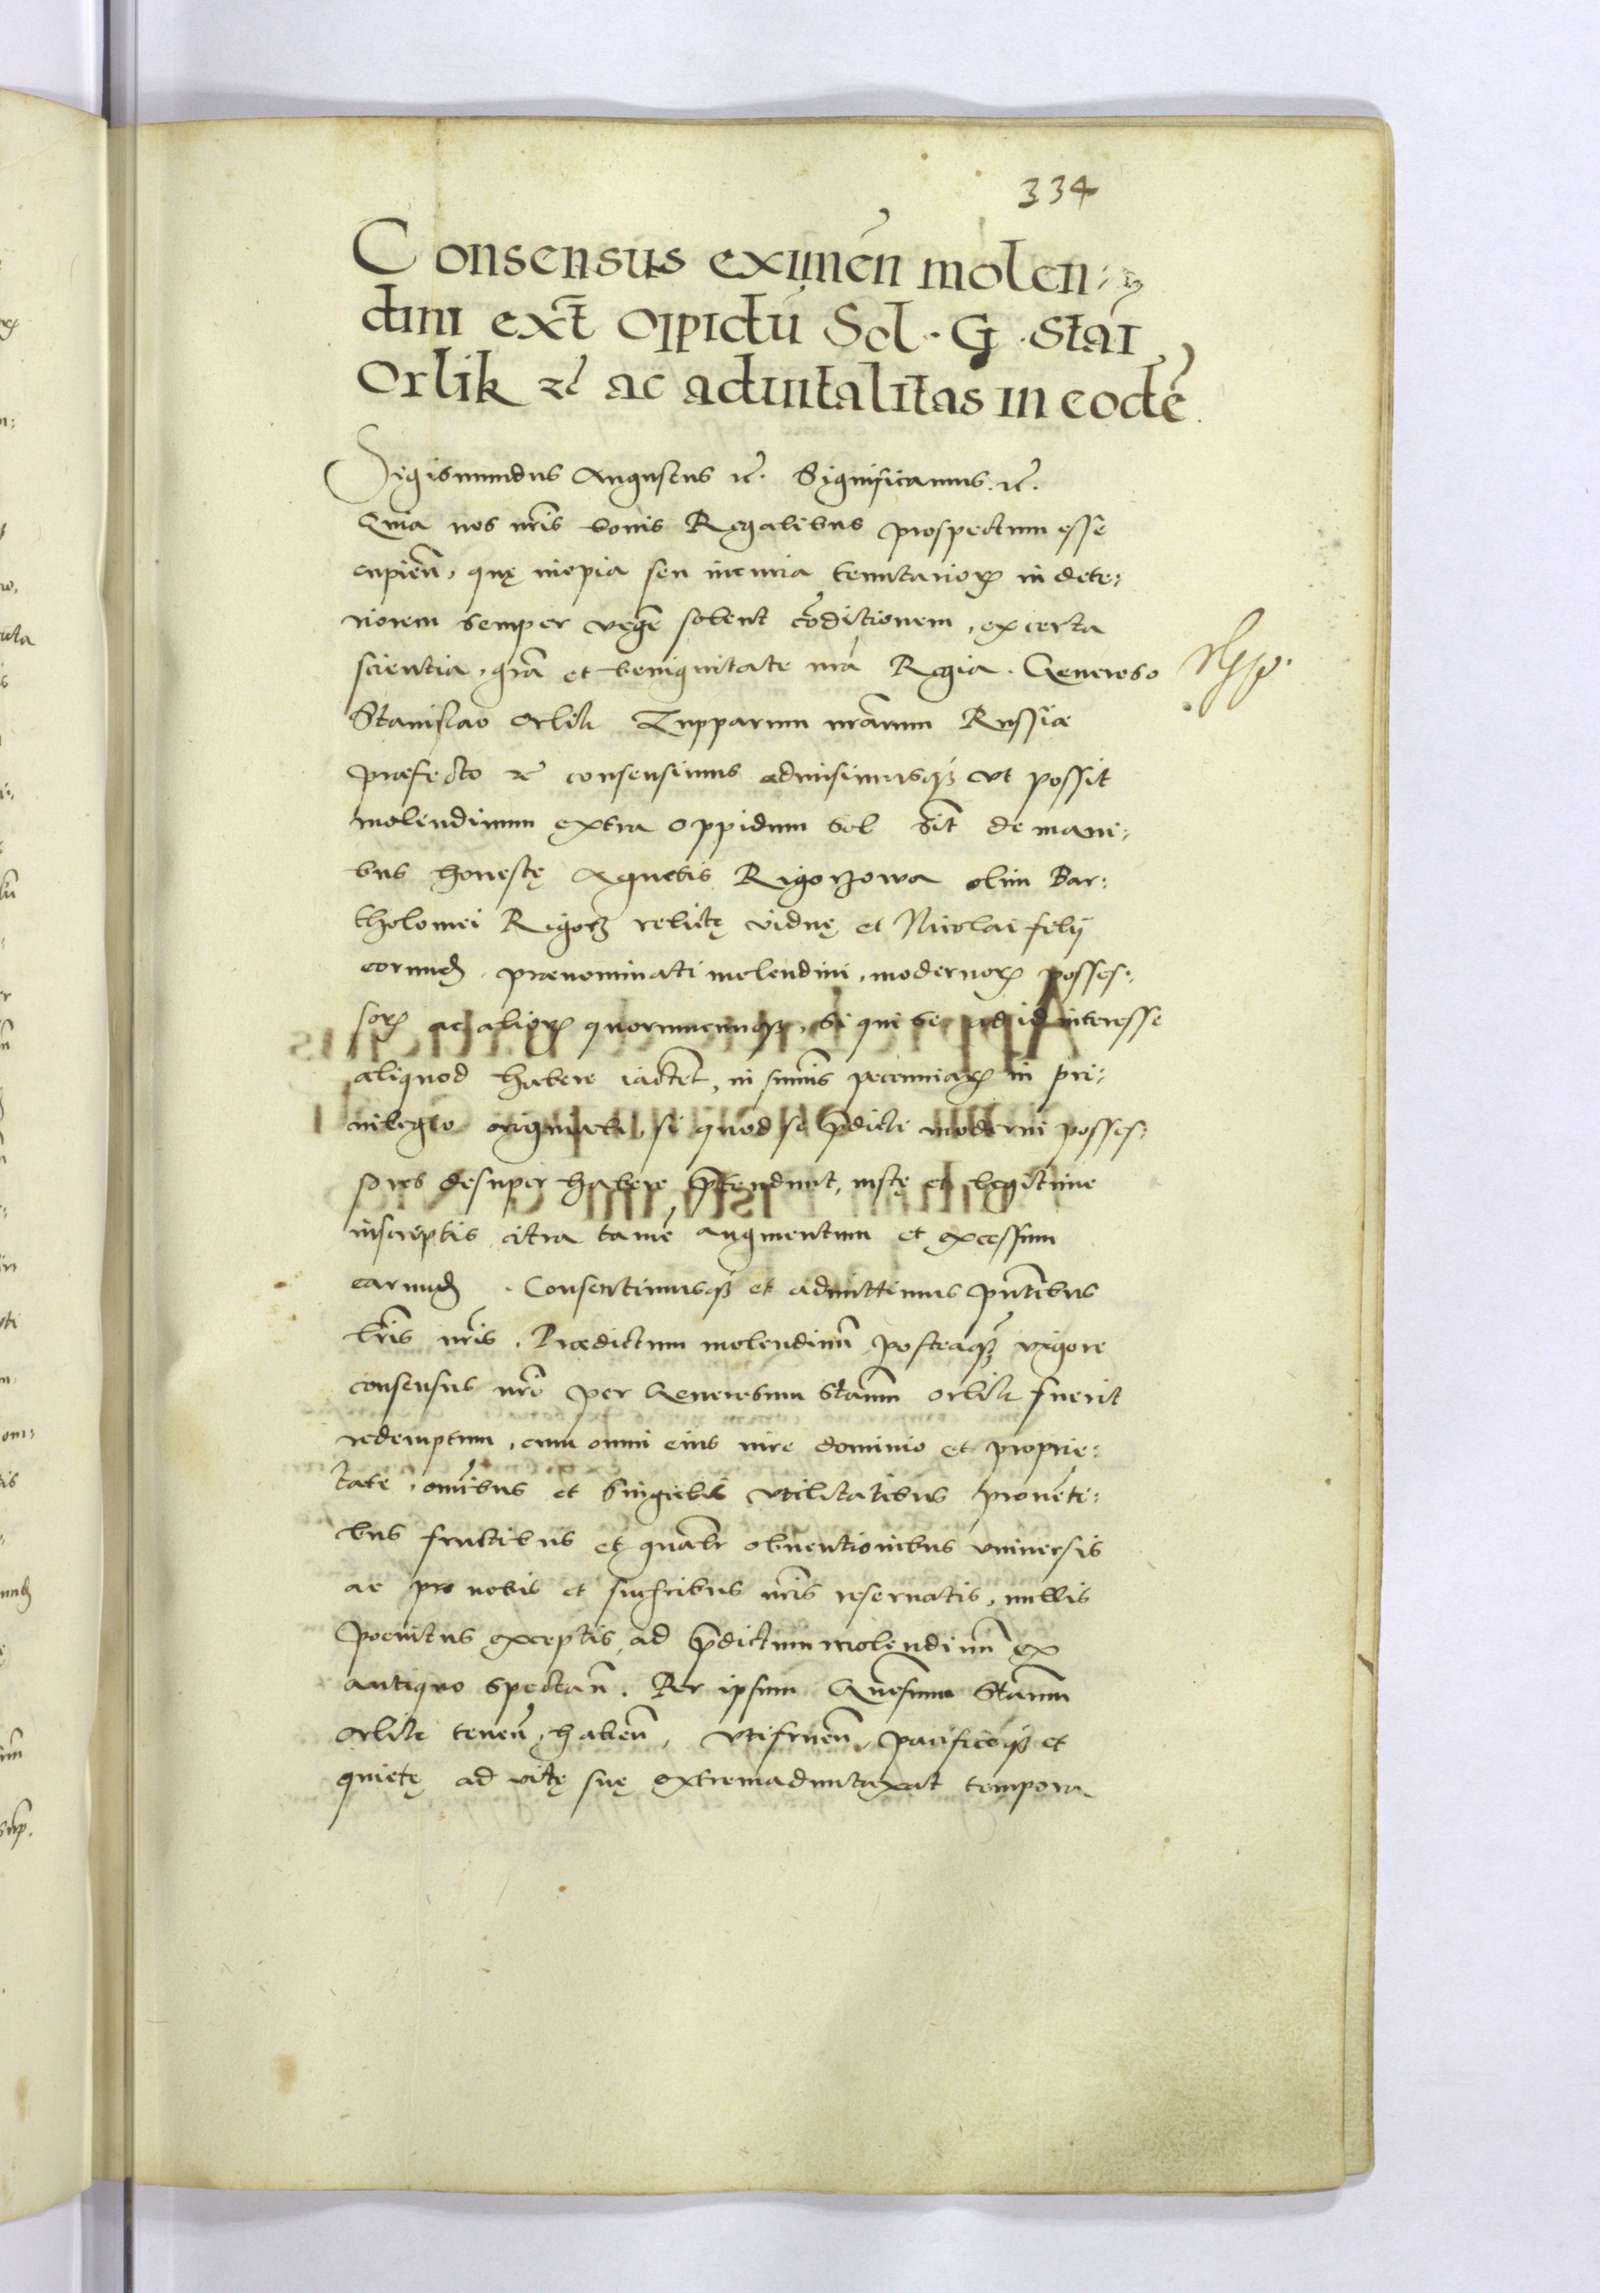 334
Consensus eximeñ molen-
dini ext̃ oppidũ Sol. G. Stãi
Orlik &c̃ ac aduitalitas in eodẽ.
Sigismundus Augustus &c̃. Significamus &c̃.
Quia nos nr̃is bonis Regalibus prospectum esse
cupieñ, quę inopia seu incuria tenutarioꝝ in dete-
riorem semper vęgẽ solent cõditionem, ex certa
scientia, grã et benignitate nrã Regia. Generoso
Stanislao Orlik Zupparum nrãrum Russiæ
præfecto &c̃ consensimus admisimusqꝫ vt possit
molendinum extra oppidum Sol sit̃ de mani-
bus honestę Agnetis Rigorzowa olim Bar-
tholomei Rigorz relictę viduę et Nicolai filij
eorund̃, prænominati molendini, modernoꝝ posses-
soꝝ ac alioꝝ quorumcunqꝫ, si qui se ad id interesse
aliquod habere iactẽt, in sum̃is pecuniaꝝ in pri-
uilegio originali, si quod se p̃dicti moderni posses-
sores desuper habere p̃tendunt, iustę et legitime
inscriptis citra tamẽ augmentum et excessum
earund̃. Consentimusqꝫ et admittimus pñtibus
lr̃is nr̃is. Prædictum molendinũ posteaqꝫ vigore
consensus nrĩ per Generosum Stanũ Orlik fuerit
redemptum, cum omni eius iure dominio et proprie-
tate, omĩbus et singulis vtilitatibus prouẽti-
bus fructibus et quãlr̃ obuentionibus vniuersis
ac pro nobis et succr̃ibus nr̃is reseruatis, nullis
poenitus exceptis, ad p̃dictum molendinũ ex
antiquo spectañ. Per ipsum Gñesum Stanũ
Orlik teneñ, habeñ, vtifrueñ, pacificeqꝫ et
quietę ad vitę suę extrema duntaxat tempora